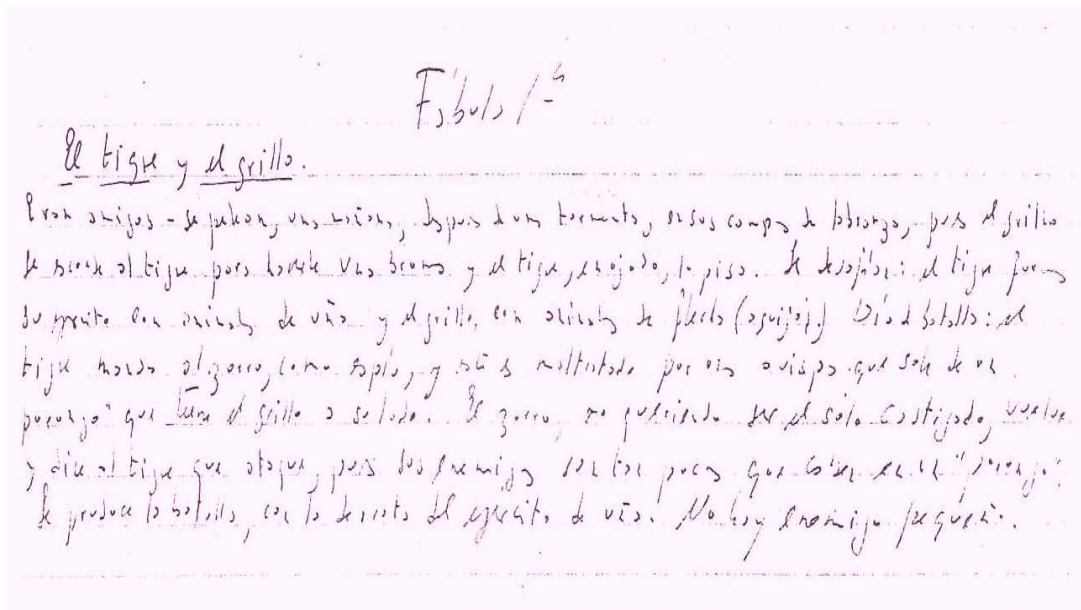 Fábula 1ª
El tigre y el grillo.
Eran amigos - se pelean, una mañana, después de una tormenta, en sus campos de labranza, pues el grillo
se mete al tigre para hacerle una broma y el tigre, enojado, lo pisa. Se desafían: el tigre forma
su ejército con animales de uña y el grillo, con animales de (aguijón). Día d batalla: el
tigre manda al zorro, como espía, y éste es maltratado por una avispa que sale de un
porongo" que tiene el grillo a su lado. El zorro, no queriendo ser el sólo castigado, vuelve
y dice al tigre que ataque, pues sus enemigos son tan pocos que caben en un "porongo".
Se produce la batalla, con la derrota del ejército de uña. No hay enemigo pequeño.